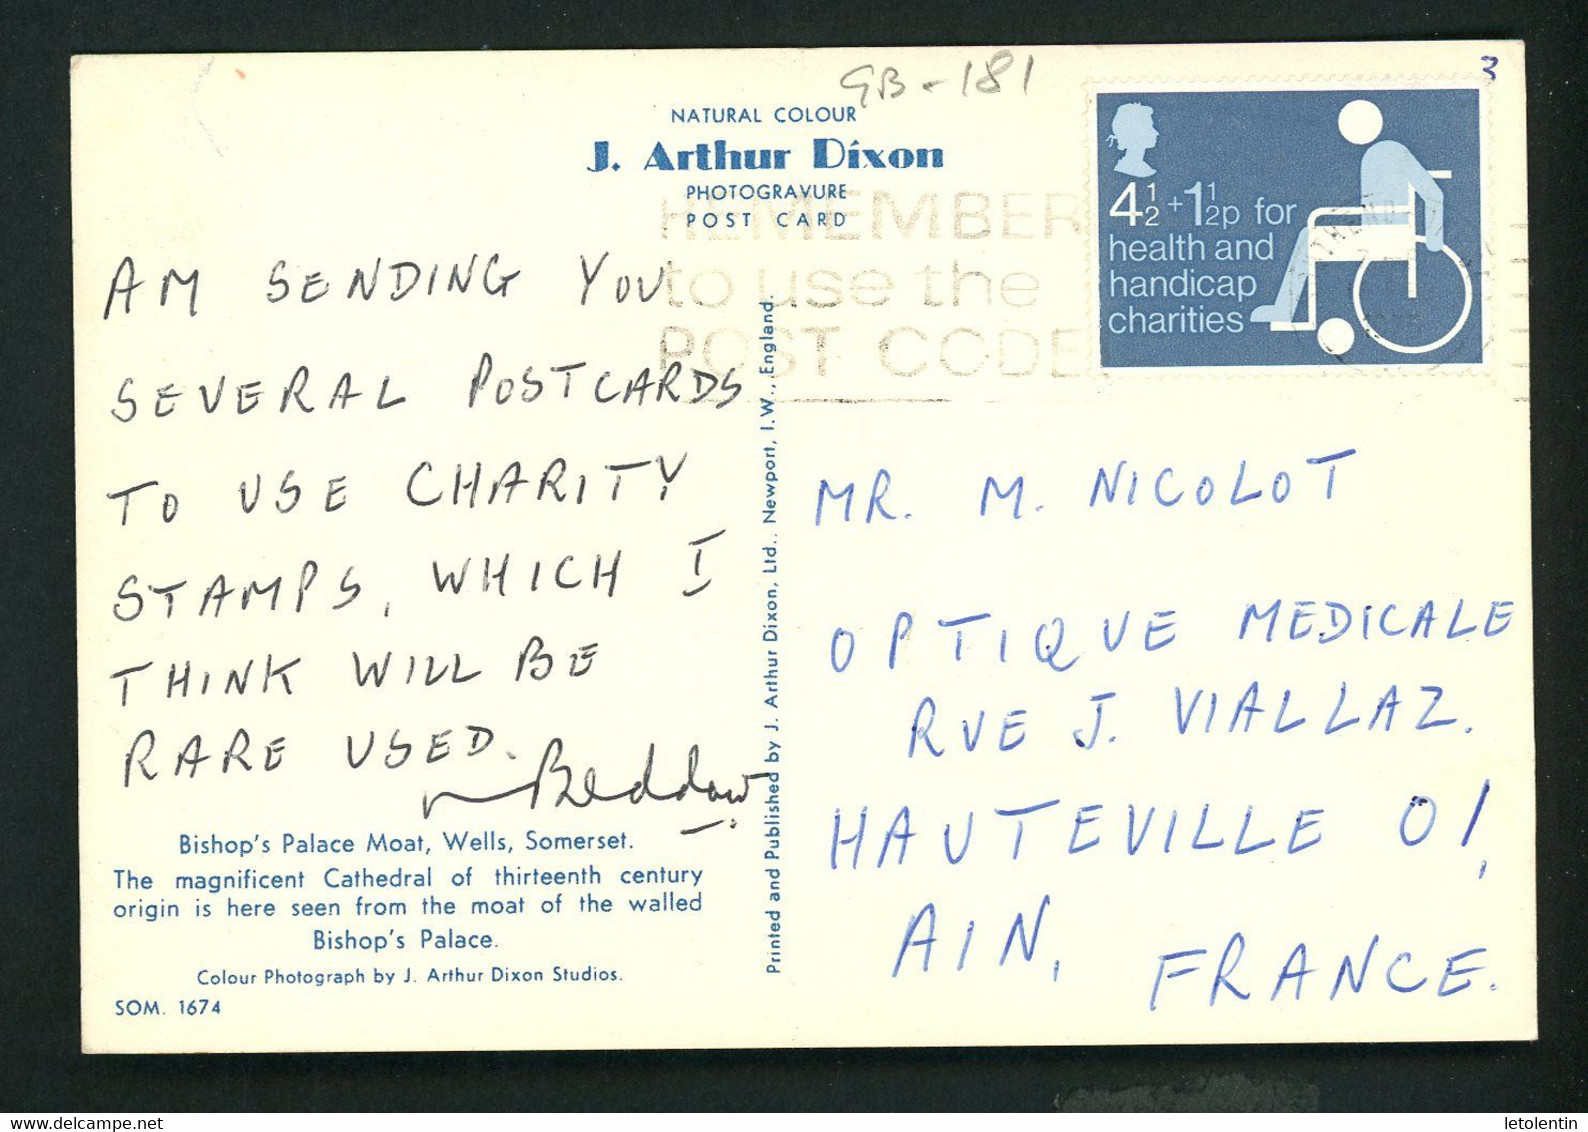 GB-181
3
NATURAL COLOUR
J. Arthur Dixon
PHOTOGRAVURE
POST CARD
REMEMBER
to use the
POST CODE
4½+1½p for
health and
handicap
charities
AM SENDING YOU
SEVERAL POSTCARDS
TO USE CHARITY
STAMPS, WHICH I
THINK WILL BE
RARE USED.
Beddow
Bishop's Palace Moat, Wells, Somerset.
The magnificent Cathedral of thirteenth century
origin is here seen from the moat of the walled
Bishop's Palace.
Colour Photograph by J. Arthur Dixon Studios.
SOM. 1674
Printed and Published by J. Arthur Dixon, Ltd., Newport, I.W., England.
MR. M. NICOLOT
OPTIQUE MEDICALE
RUE J. VIALLAZ.
HAUTEVILLE 01,
AIN, FRANCE.
letolentin